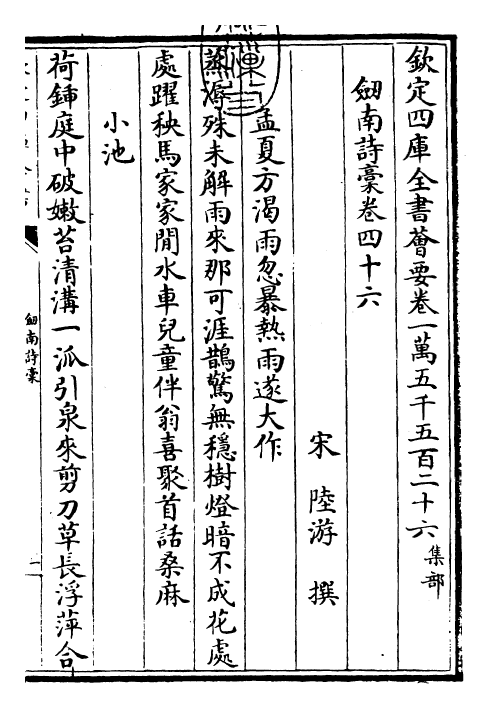 欽定四庫全書薈要卷一萬五千五百二十六集部
劒南詩稾卷四十六
宋陸游撰
孟夏方渴雨忽暴熱雨遂大作
蒸溽殊未解雨來那可涯鵲驚無穩樹燈暗不成花處
處躍秧馬家家閒水車兒童伴翁喜聚首話桑麻
小池
荷鍤庭中破嫩苔清溝一派引泉來剪刀草長浮萍合
劒南詩稾
一